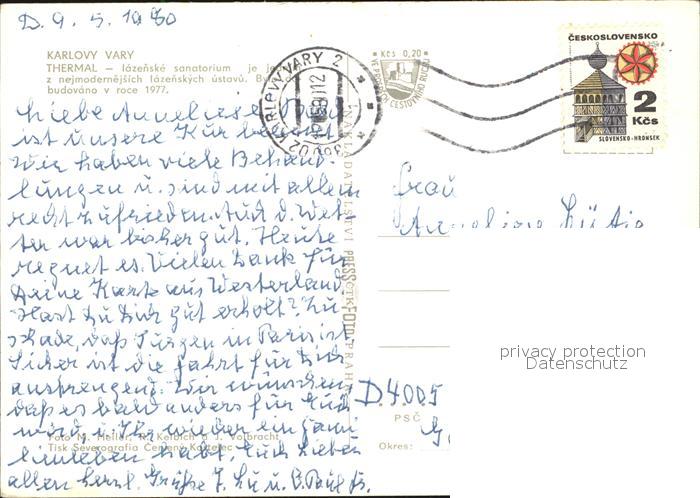 D. 9. 5. 1980
KARLOVY VARY
THERMAL — lázeňské sanatorium je
z nejmodernějších lázeňských ústavů.
budováno v roce 1977.
Liebe Anneliese
ist unsere Kur
Wir haben viele Behand-
lungen u. sind mit allem
recht zufrieden. Auch d. Wet-
ter war bisher gut. Heute
regnet es. Vielen Dank für
Deine Karte aus Westerland.
Hast Du Dich gut erholt?
schade, daß Jürgen in Paris ist
Sicher ist die Fahrt für Dich
anstrengend. Wir wünschen
daß es bald anders für Euch
wird u. Ihr wieder ein
habt. Euch lieben
allen herzl. Grüße
Foto M. Heller, R. Kelbich a J. Volbracht
Tisk Severografia Červený Kostelec
KARLOVY VARY 2
360 02
Kčs 0,20
CESTOVNÍHO RUCHU
PRESSFOTO PRAHA
ČESKOSLOVENSKO
2
Kčs
SLOVENSKO-HRONSEK
Frau
D. 4005
PSČ
Okres:
privacy protection
Datenschutz